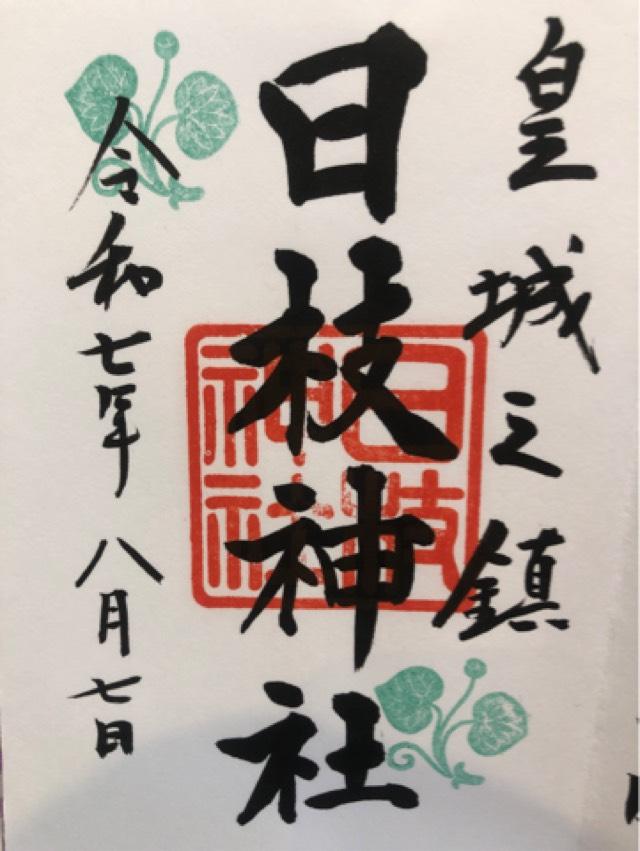 皇城之鎮
日枝神社
日枝神社
令和七年八月七日